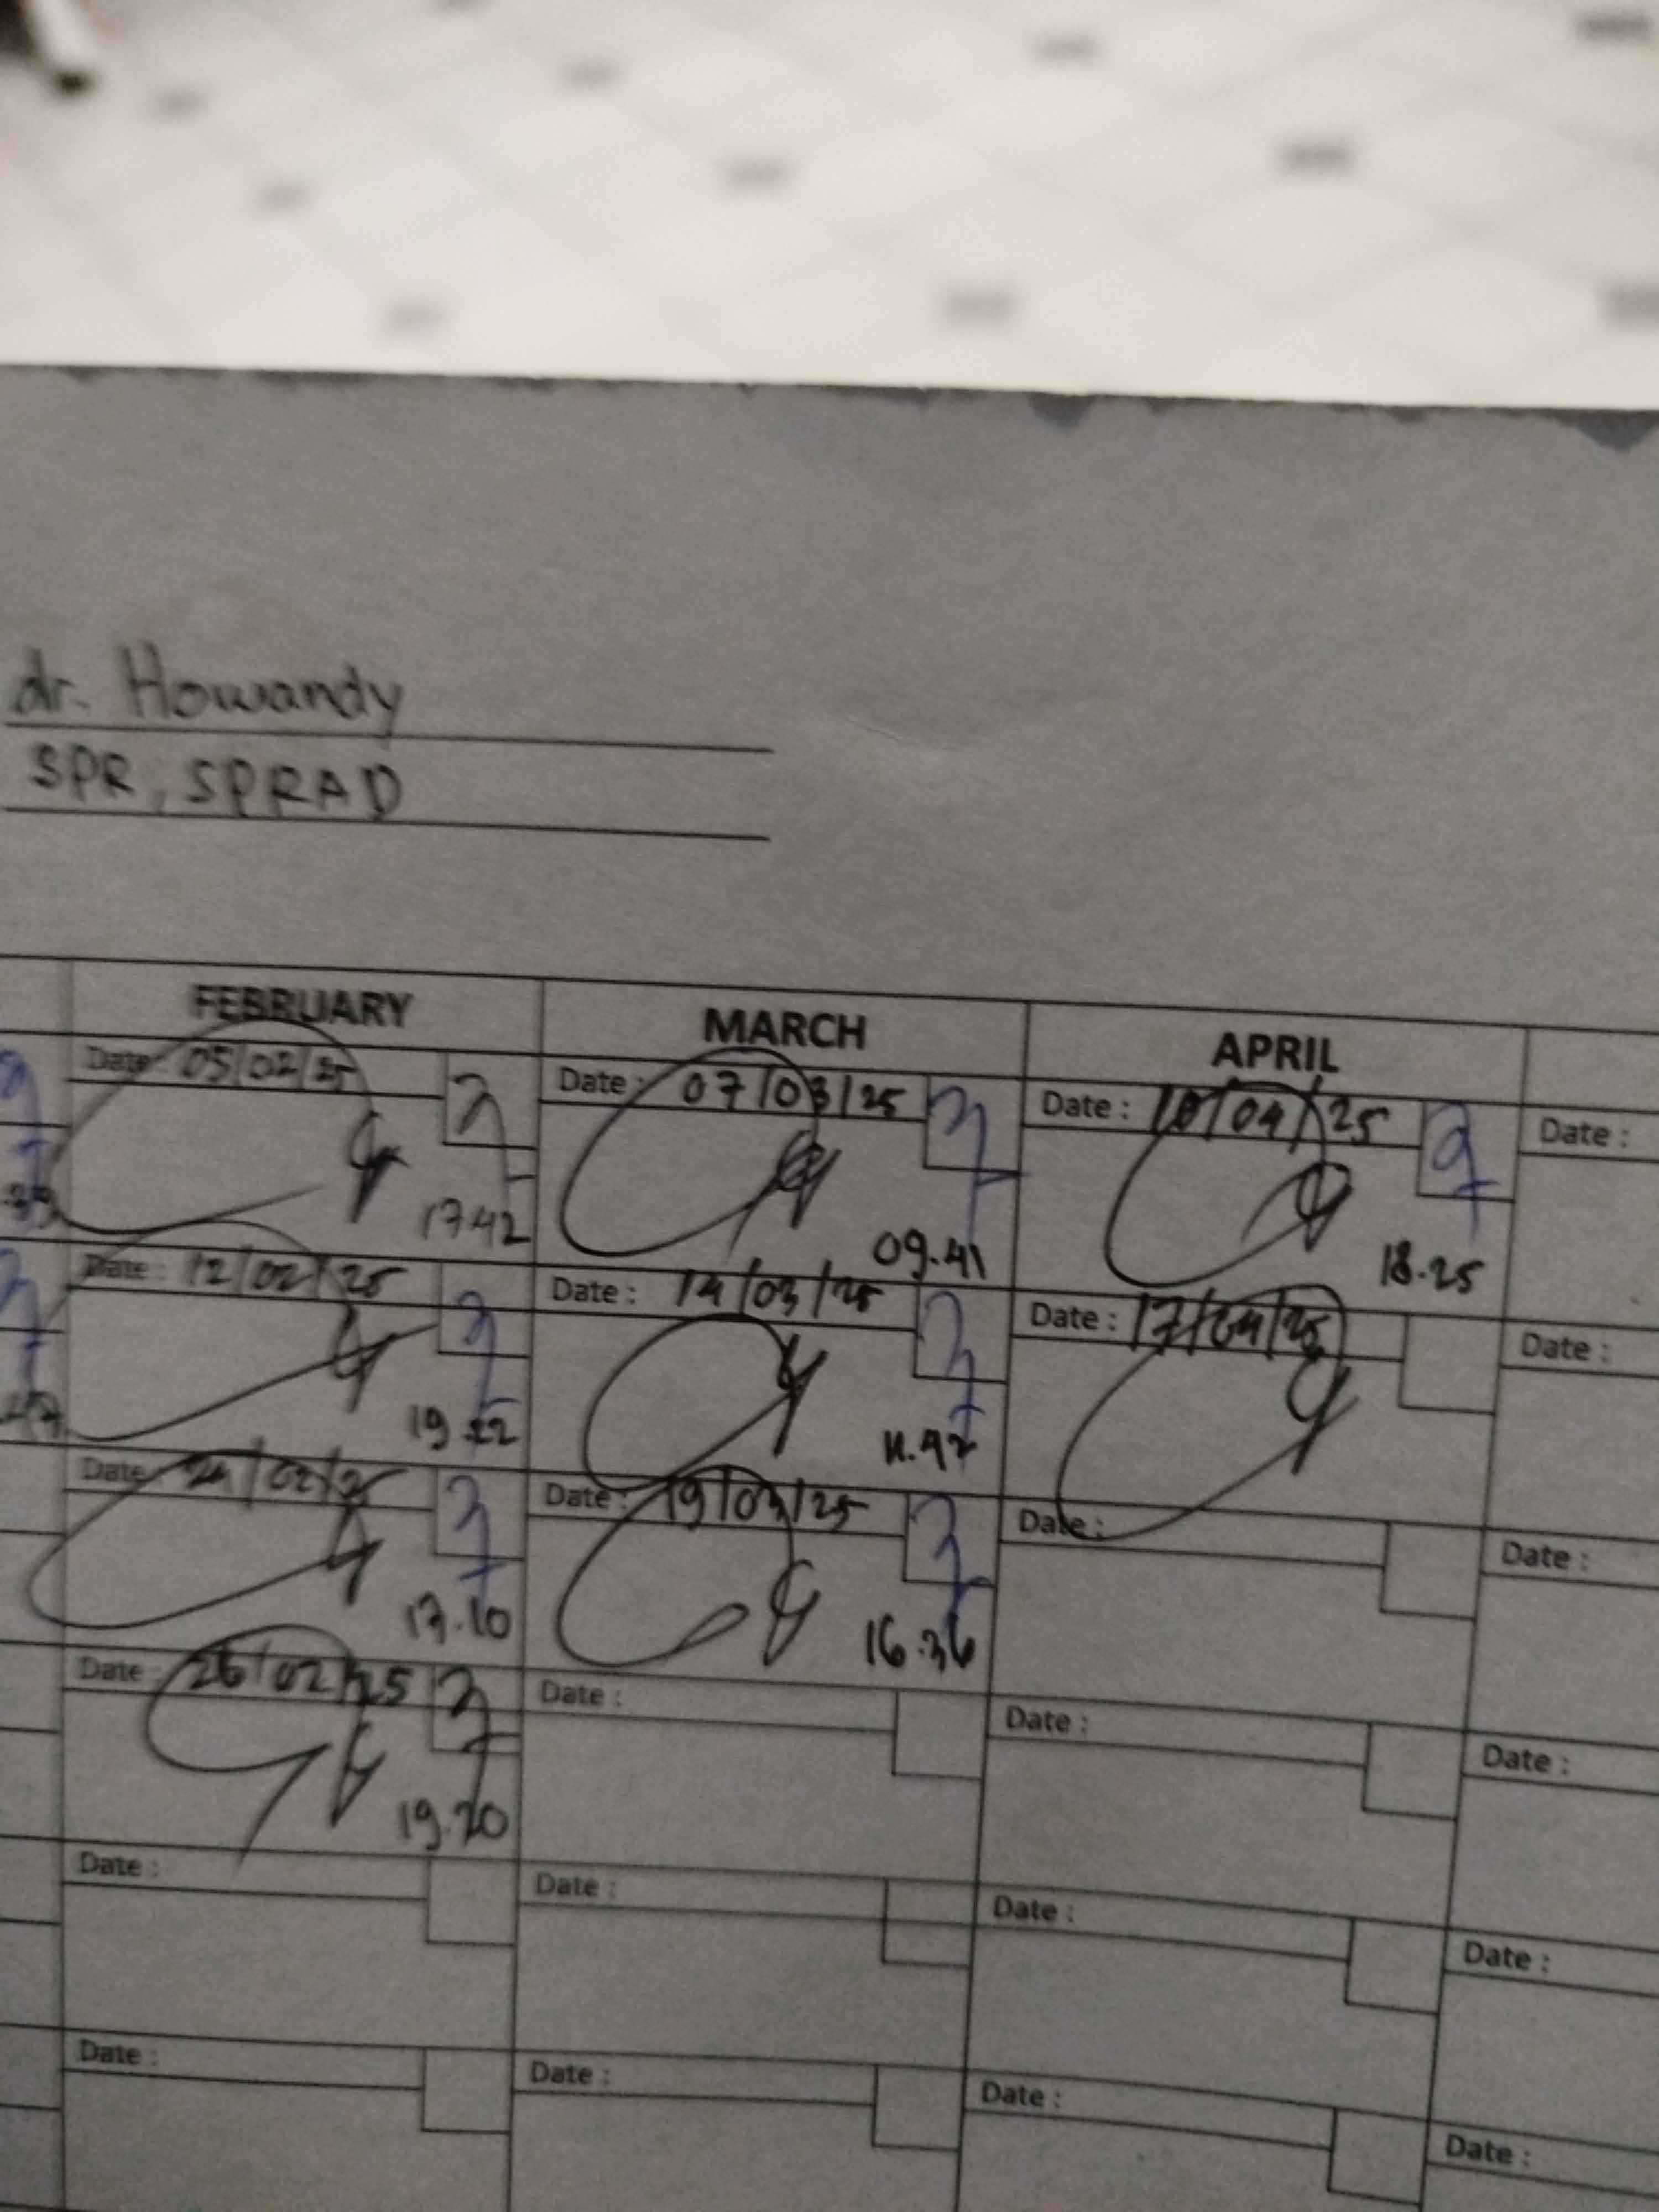 dr. Howandy
SPR, SPRAD
FEBRUARY MARCH APRIL
Date: 05/02/25 Date: 07/03/25 Date: 10/04/25 Date:
17.42 09.41 18.25
Date: 12/02/25 Date: 14/03/25 Date: 17/04/25 Date:
19.22
Date: 02 Date: 19/03/25 Date: Date:
17.10 16.36
Date: 26/02/25 Date: Date: Date:
19.20
Date: Date: Date: Date:
Date: Date: Date: Date: